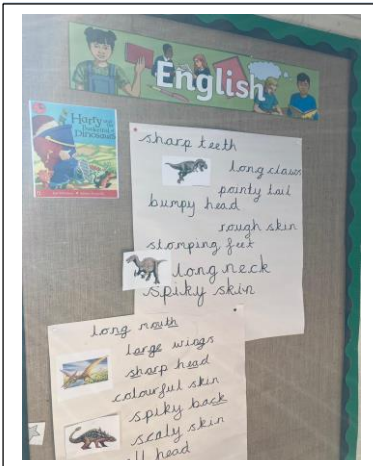 English
Harry and the
Dinosaurs
sharp teeth
long claws
pointy tail
bumpy head
rough skin
stomping feet
long neck
spiky skin
long mouth
large wings
sharp head
colourful skin
spiky back
scaly skin
head